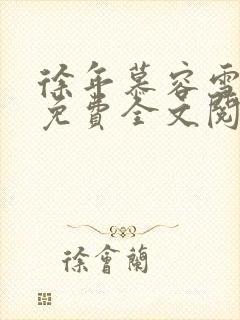 徐年慕容雪
免費全文閱
徐會蘭